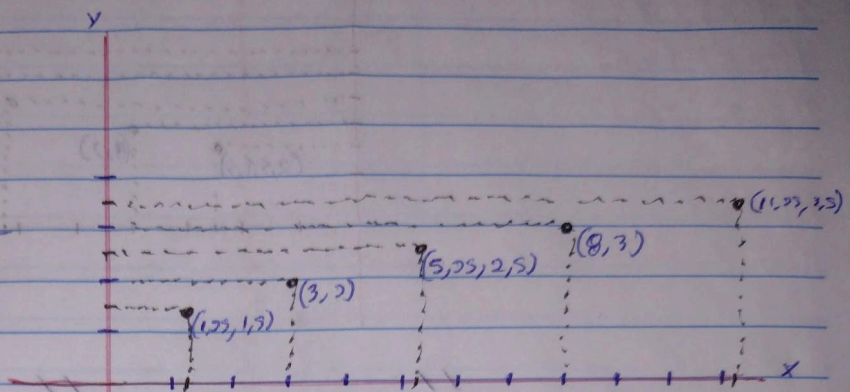 Y
(11,25,3,5)
(8,3)
(5,25,2,5)
(3,2)
(1,25,1,5)
X